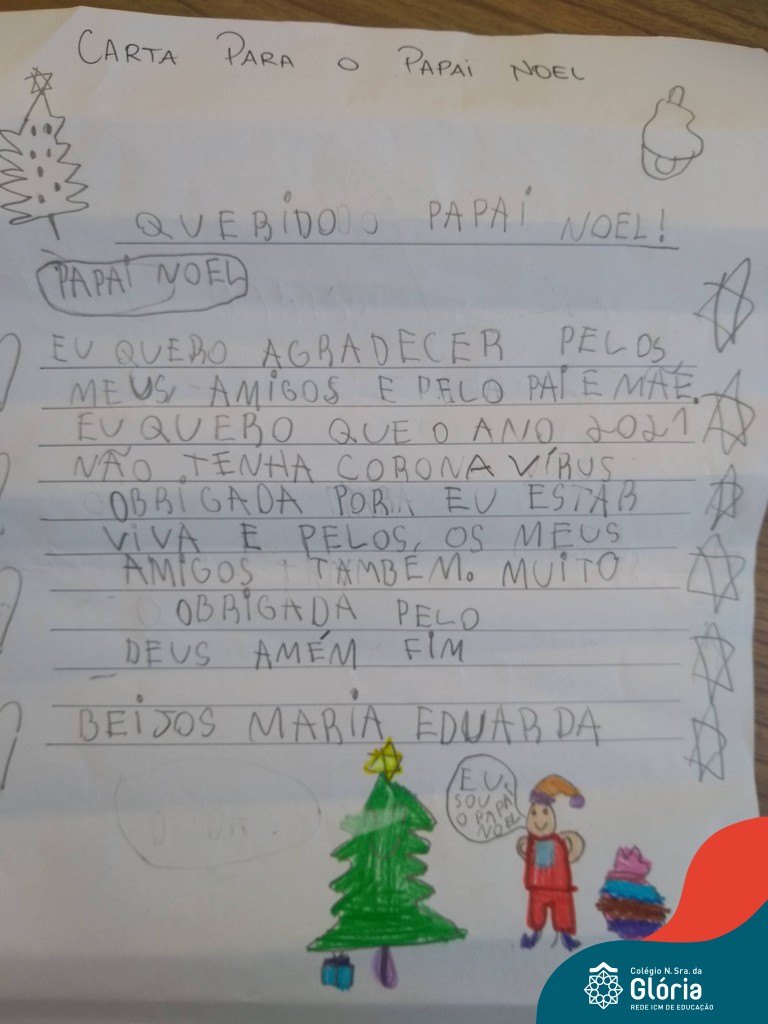 CARTA PARA O PAPAI NOEL
QUERIDO PAPAI NOEL!
PAPAI NOEL
EU QUERO AGRADECER PELOS,
MEUS AMIGOS E PELO PAI E MÃE.
EU QUERO QUE O ANO 2021
NÃO TENHA CORONA VÍRUS
OBRIGADA POR EU ESTAR
VIVA E PELOS, OS MEUS
AMIGOS TAMBÉM. MUITO
OBRIGADA PELO
DEUS AMÉM FIM
BEIJOS MARIA EDUARDA
EU
SOU
O PAPAI
NOEL
Colégio N. Sra. da
Glória
REDE ICM DE EDUCAÇÃO